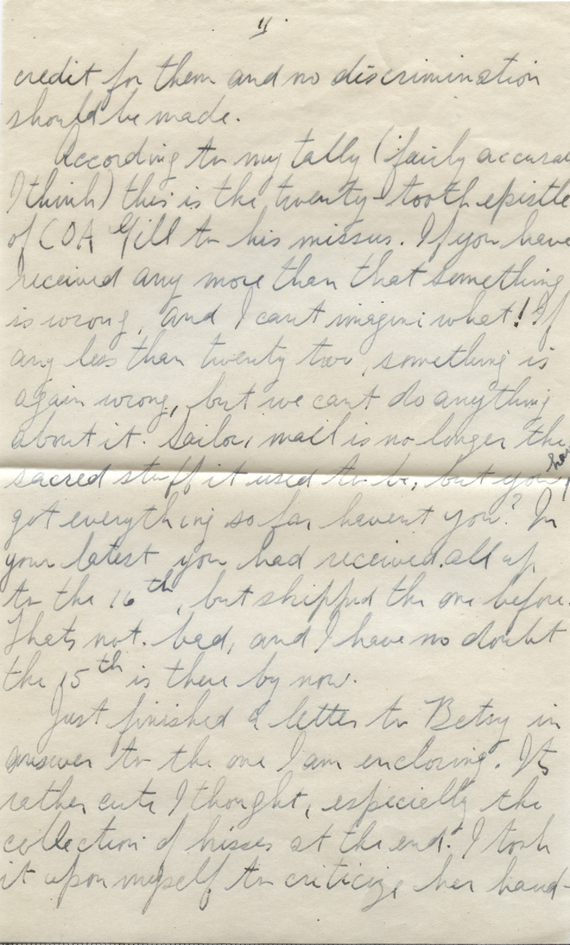 4.
credit for them and no discrimination
should be made.
According to my tally (fairly accurate
I think) this is the twenty-tooth epistle
of COA Gill to his missus. If you have
received any more than that something
is wrong, and I cant imagine what! If
any less than twenty two, something is
again wrong, but we cant do anything
about it. Sailor mail is no longer the
sacred stuff it used to be, but you have
got everything so far havent you? In
your latest you had received all up
to the 16th, but skipped the one before.
Thats not bad, and I have no doubt
the 15th is there by now.
Just finished a letter to Betsy in
answer to the one I am enclosing. Its
rather cute I thought, especially the
collection of kisses at the end. I took
it upon myself to criticize her hand-